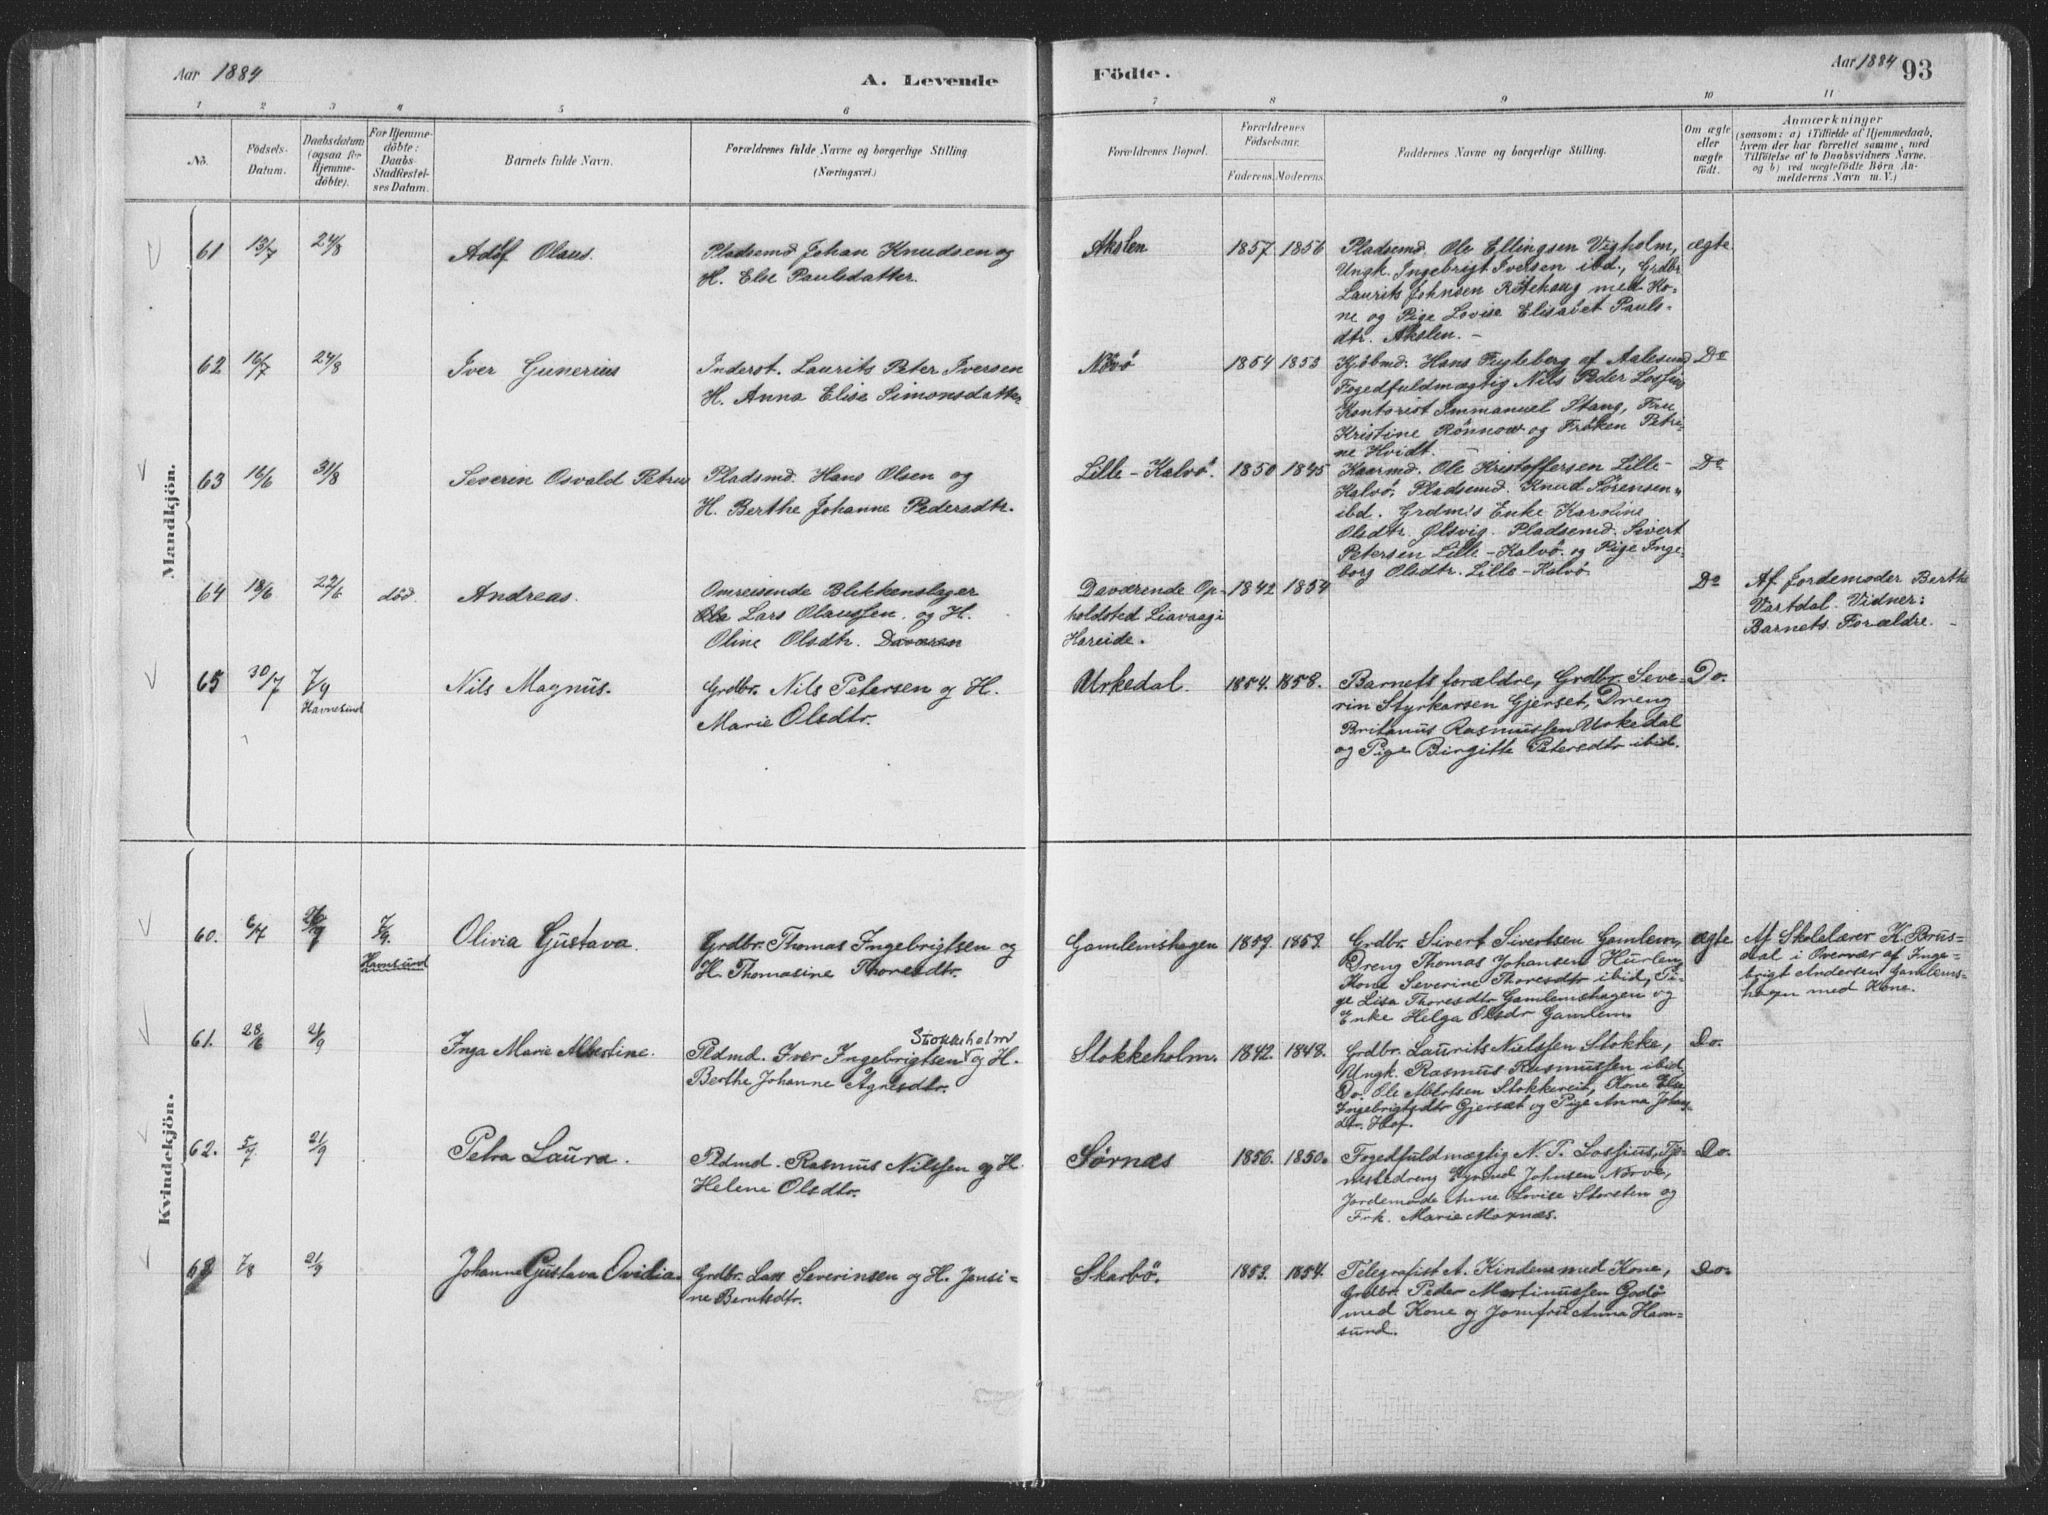 Aar 1884
A. Levende
Födte.
Aar 1884
93
1 2 3 4 5 6 7 8 9 10 11
No.
Födsels-
Datum.
Daabsdatum
(ogsaa for
Hjemme-
döbte).
For Hjemme-
döbte:
Daabs-
Stadfæstel-
ses Datum.
Barnets fulde Navn.
Forældrenes fulde Navne og borgerlige Stilling
(Næringsvei.)
Forældrenes Bopæl.
Forældrenes
Födselsaar.
Faderens. Moderens.
Faddernes Navne og borgerlige Stilling.
Om ægte
eller
uægte
födt.
Anmærkninger
(saasom: a) i Tilfælde af Hjemmedaab,
hvem der har forrettet samme, med
Tilföielse af to Daabsvidners Navne.
og b) ved uægtefödte Börn An-
melderens Navn m. V.)
Mandkjön.
61 13/7 24/8
Adolf Olaus.
Pladsemd. Johan Knudsen og
H. Else Paulsdatter.
Akslen
1857. 1856
Pladsemd. Ole Ellingsen Vigholm,
Ungk. Ingebrigt Iversen ibd., Grdbr
Laurits Johnsen Rötehaug med Ko-
ne og Pige Lovise Elisavet Pauls-
dtr. Akslen. –
ægte
62 16/7 24/8
Iver Gunerius
Inderst. Laurits Peter Iversen
H. Anna Elise Simonsdatter
Növö
1854 1853
Kjöbmd. Hans Fugleberg af Aalesund
Fogedfuldmægtig Nils Peder Lossius
Kontorist Immanuel Stang, Fru
Kristine Rönnow og Fröken Petri-
ne Hvidt.
Do
63 16/6 31/8
Severin Osvald Petrus
Pladsmd. Hans Olsen og
H. Berthe Johanne Pedersdtr.
Lille-Kalvö.
1850 1845
Kaarmd. Ole Kristoffersen Lille-
Kalvö, Pladsemd. Knud Sörensen
ibd. Grdm's Enke Karoline
Olsdtr. Ölsvig. Pladsemd. Sivert
Petersen Lille-Kalvö og Pige Inge-
borg Olsdtr. Lille-Kalvö.
Do
64 18/6 22/6 död.
Andreas.
Omreisende Blekkenslager
Lars Olaussen og H.
Oline Olsdtr. Daværen
Daværende Op-
holdsted Liavaag i
Hareide.
1842 1854
Do
Af Jordemoder Berthe
Vartdal. Vidner:
Barnets Forældre. –
65 30/7 7/9
Havnsund
Nils Magnus.
Grdbr. Nils Petersen og H.
Marie Olsdtr.
Urkedal.
1854. 1858.
Barnets forældre, Grdbr. Seve-
rin Styrkarsen Gjerset, Dreng
Britanus Rasmussen Urkedal
og Pige Birgitte Petersdtr ibid.
Do.
Kvindekjön.
60. 6/7 7/9.
Havnsund
Olivia Gustava.
Grdbr. Thomas Ingebrigtsen og
H. Thomasine Thoresdtr.
Gamlemshagen
1859. 1859.
Grdbr. Sivert Sivertsen Gamlem,
Dreng Thomas Johansen Hurlen,
Kone Severine Thoresdtr ibid, Pi-
ge Lisa Thoresdtr Gamlemshagen og
Enke Helga Olsdr Gamlem.
ægte
Af Skolelærer K. Brus-
dal i Overvær af Inge-
brigt Andersen Gamlems-
hagen med Kone.
61. 28/6 21/9
Inga Marie Albertine.
Stokkeholm
Pldmd. Iver Ingebrigtsen og H.
Berthe Johanne Agnesdtr.
Stokkeholm.
1842. 1848.
Grdbr. Laurits Nielssen Stokke,
Ungk. Rasmus Rasmussen ibid,
Do. Ole Albertsen Stokkereit, Kone Else
Ingebrigtsdtr Gjersæt og Pige Anna Johans-
dtr. Hof.
Do.
62. 5/7 21/9
Petra Laura.
Pldmd. Rasmus Nilssen og H.
Helene Olsdtr.
Sörnæs
1856. 1850.
Fogedfuldmægtig N. P. Lossius, Tje-
nestedreng Eyvind Johnsen Norve,
Jordemode Anne Lovise Storsten og
Frk. Marie Moxnæs.
Do.
63 7/8 21/9
Johanne Gustava Ovidia.
Grdbr. Lars Severinsen og H. Jensi-
ne Berntsdtr.
Skarbö.
1853. 1854.
Telegrafist A. Kindem med Kone,
Grdbr. Peder Martinussen Godö
med Kone og Jomfru Anna Ham-
sund.
Do.